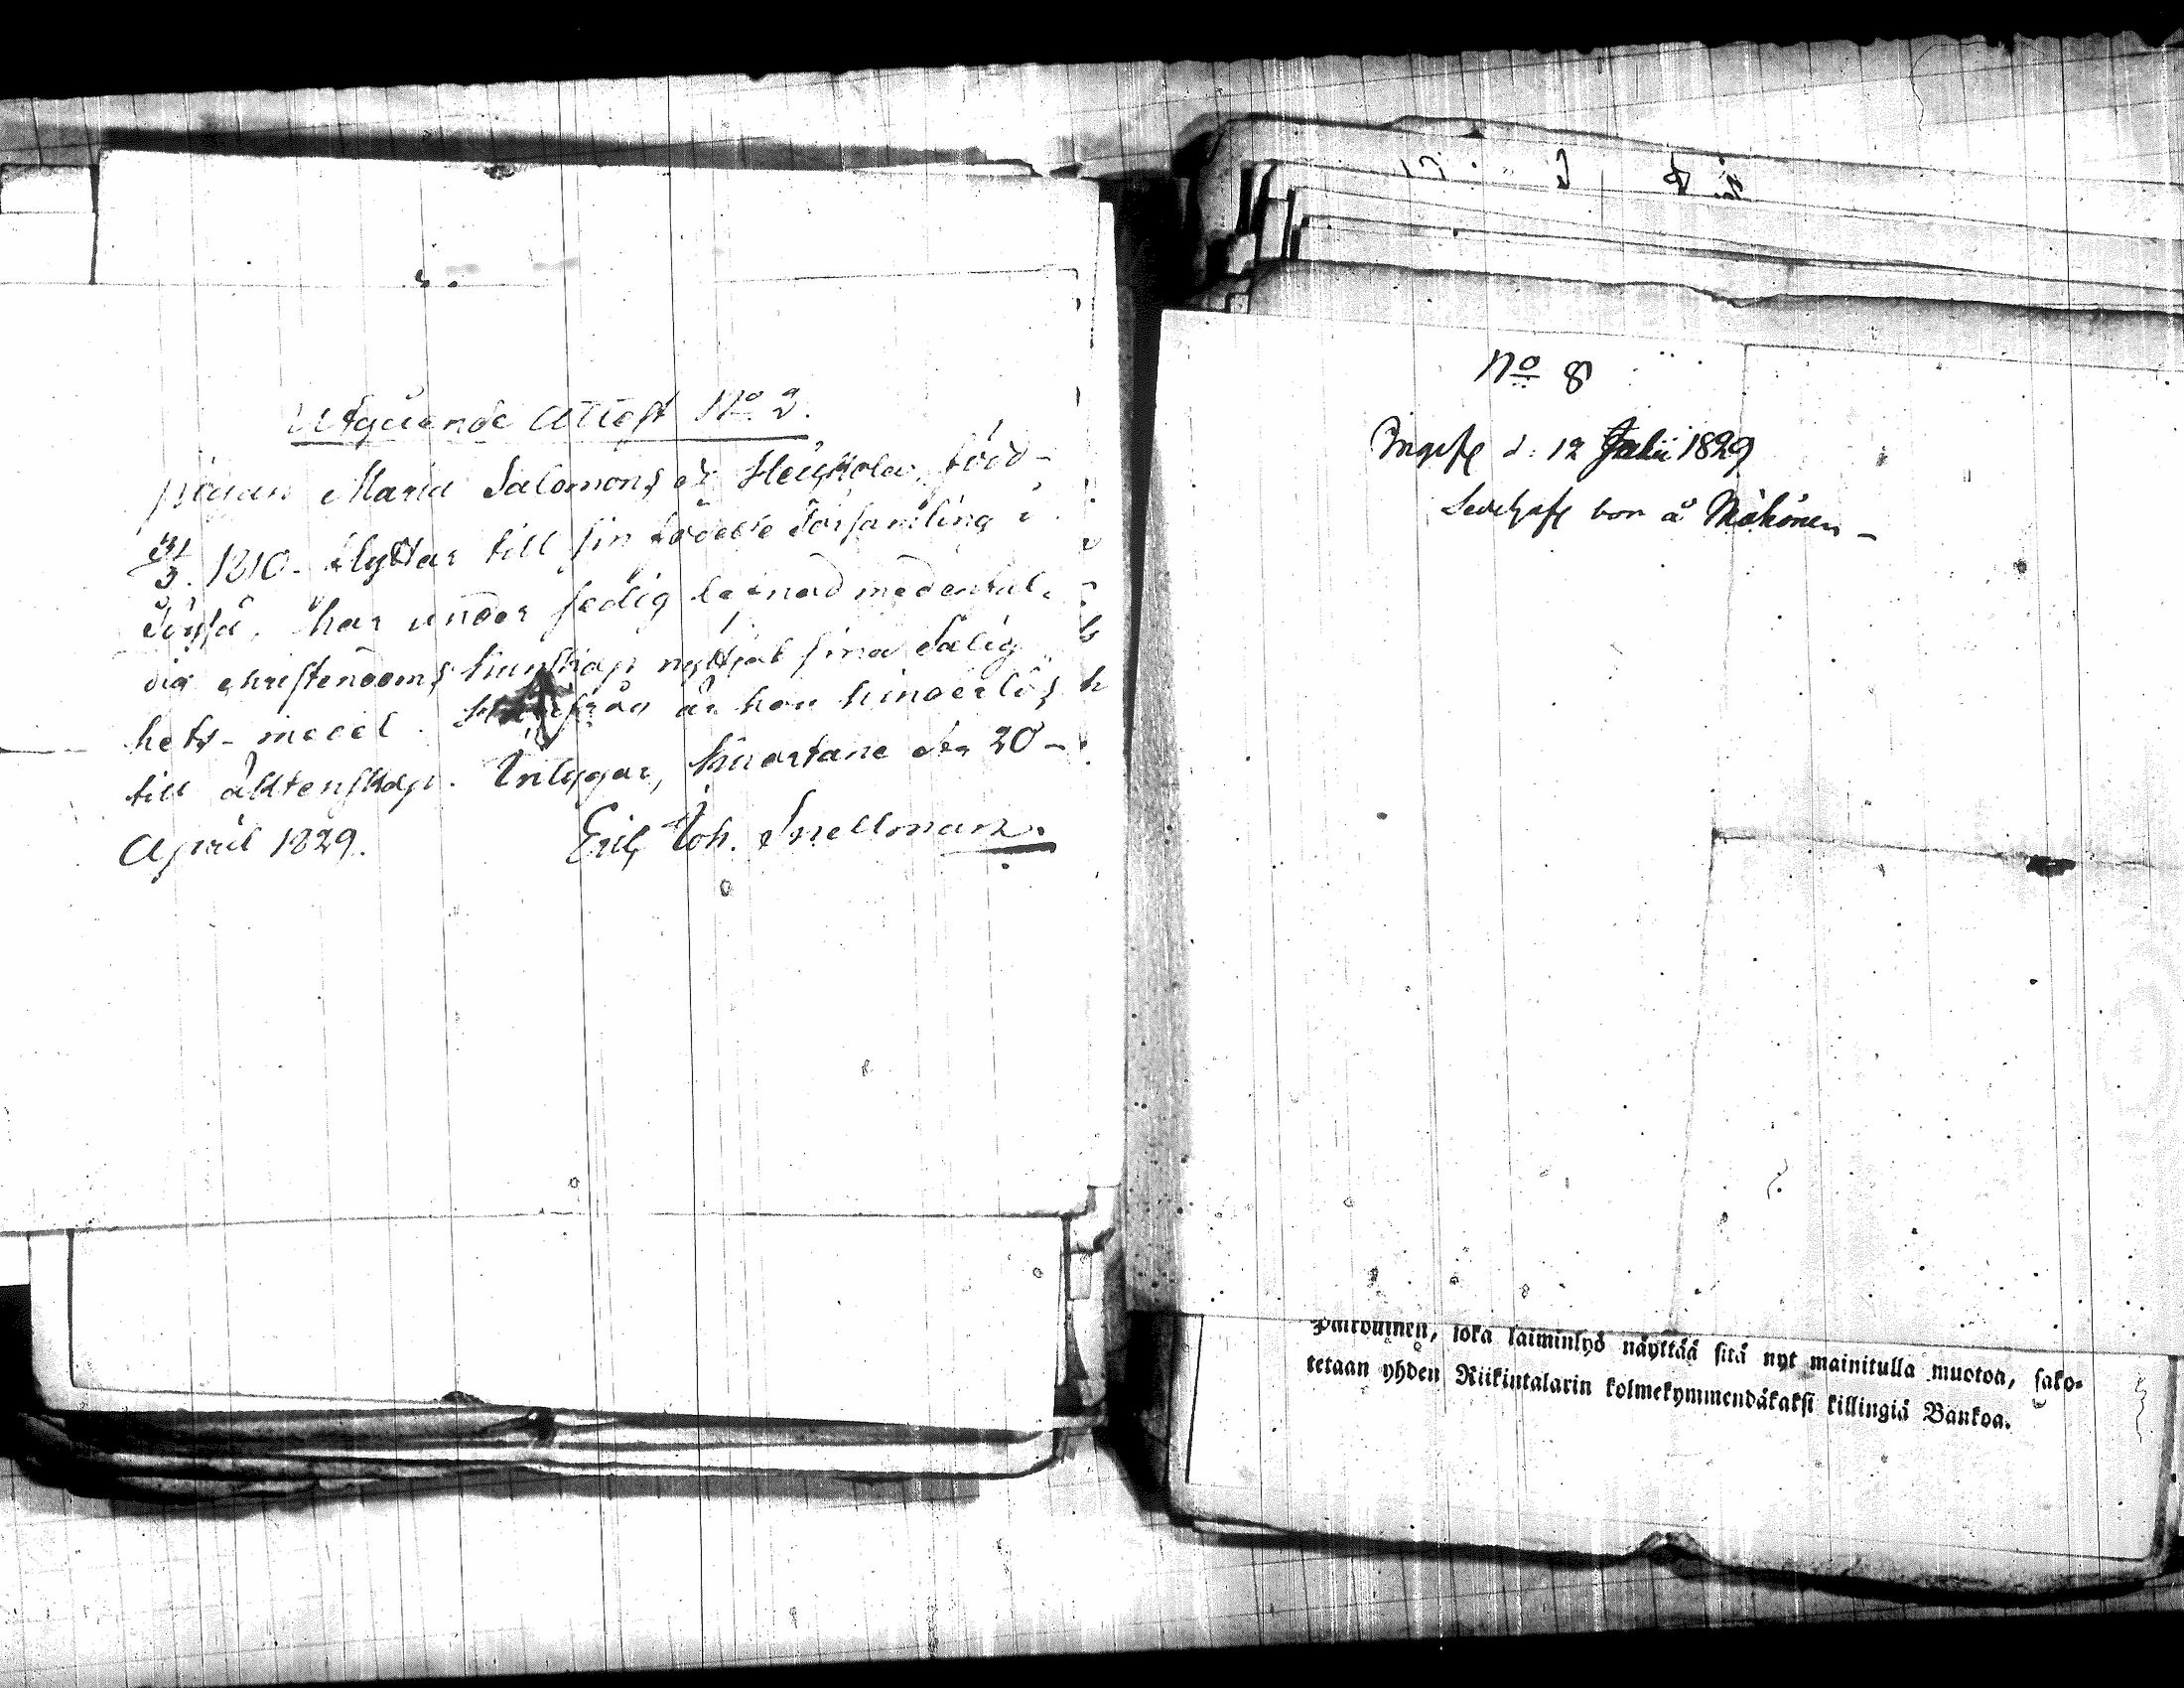 Utgående Attest No 2.
pigan Maria Salomons dr Heikkola, född-
31/3. 1810. flyttar till sin födelse Församling i
har under sedig lefnad medelmåt-
dig christendoms kunskap nyttjat sina Salig
hets-medel. Härifrån är hon hinderlös
till äktenskap. Intygar, Kuortane den 20-
April 1829. Eric Joh. Snellman.
No 8
Ingift d: 12 Julii 1829
bor å Mähönen-
joka laiminlyö näyttää sitä nyt mainitulla muotoa, sako-
tetaan yhden Riikintalarin kolmekymmendäkaksi killingiä Bankoa.